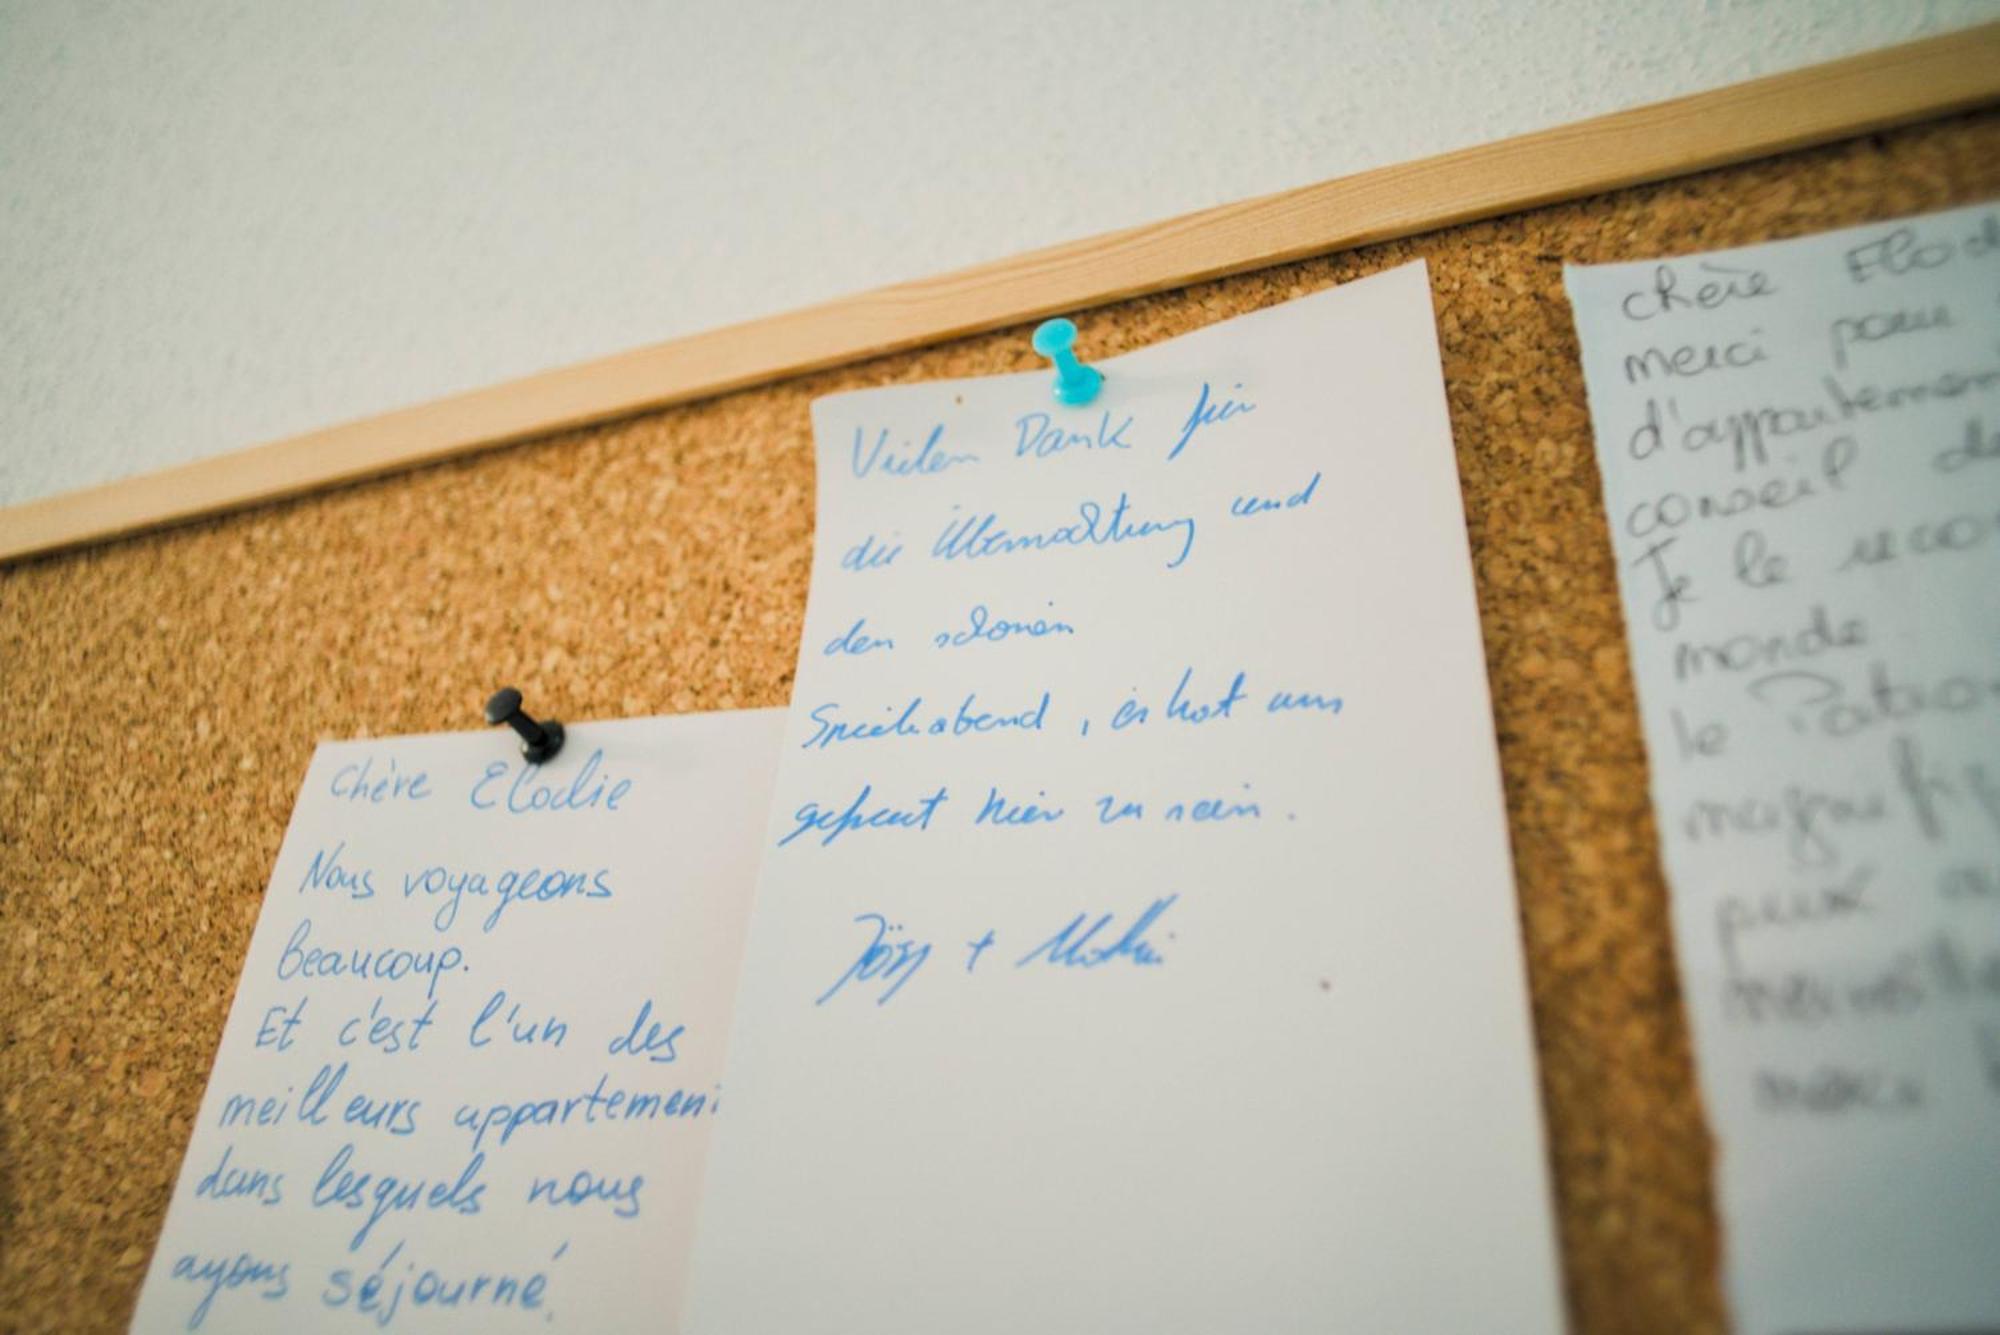 Chère Elodie
Nous voyageons
beaucoup.
Et c'est l'un des
meilleurs appartement
dans lesquels nous
ayons séjourné.
Vielen Dank für
die Übernachtung und
den schönen
Spieleabend, es hat uns
gefreut hier zu sein.
Jörg +
chère Elod
merci pour
d'appartement
conseil de
Je le reco
monde
le Patron
magnifi
merci